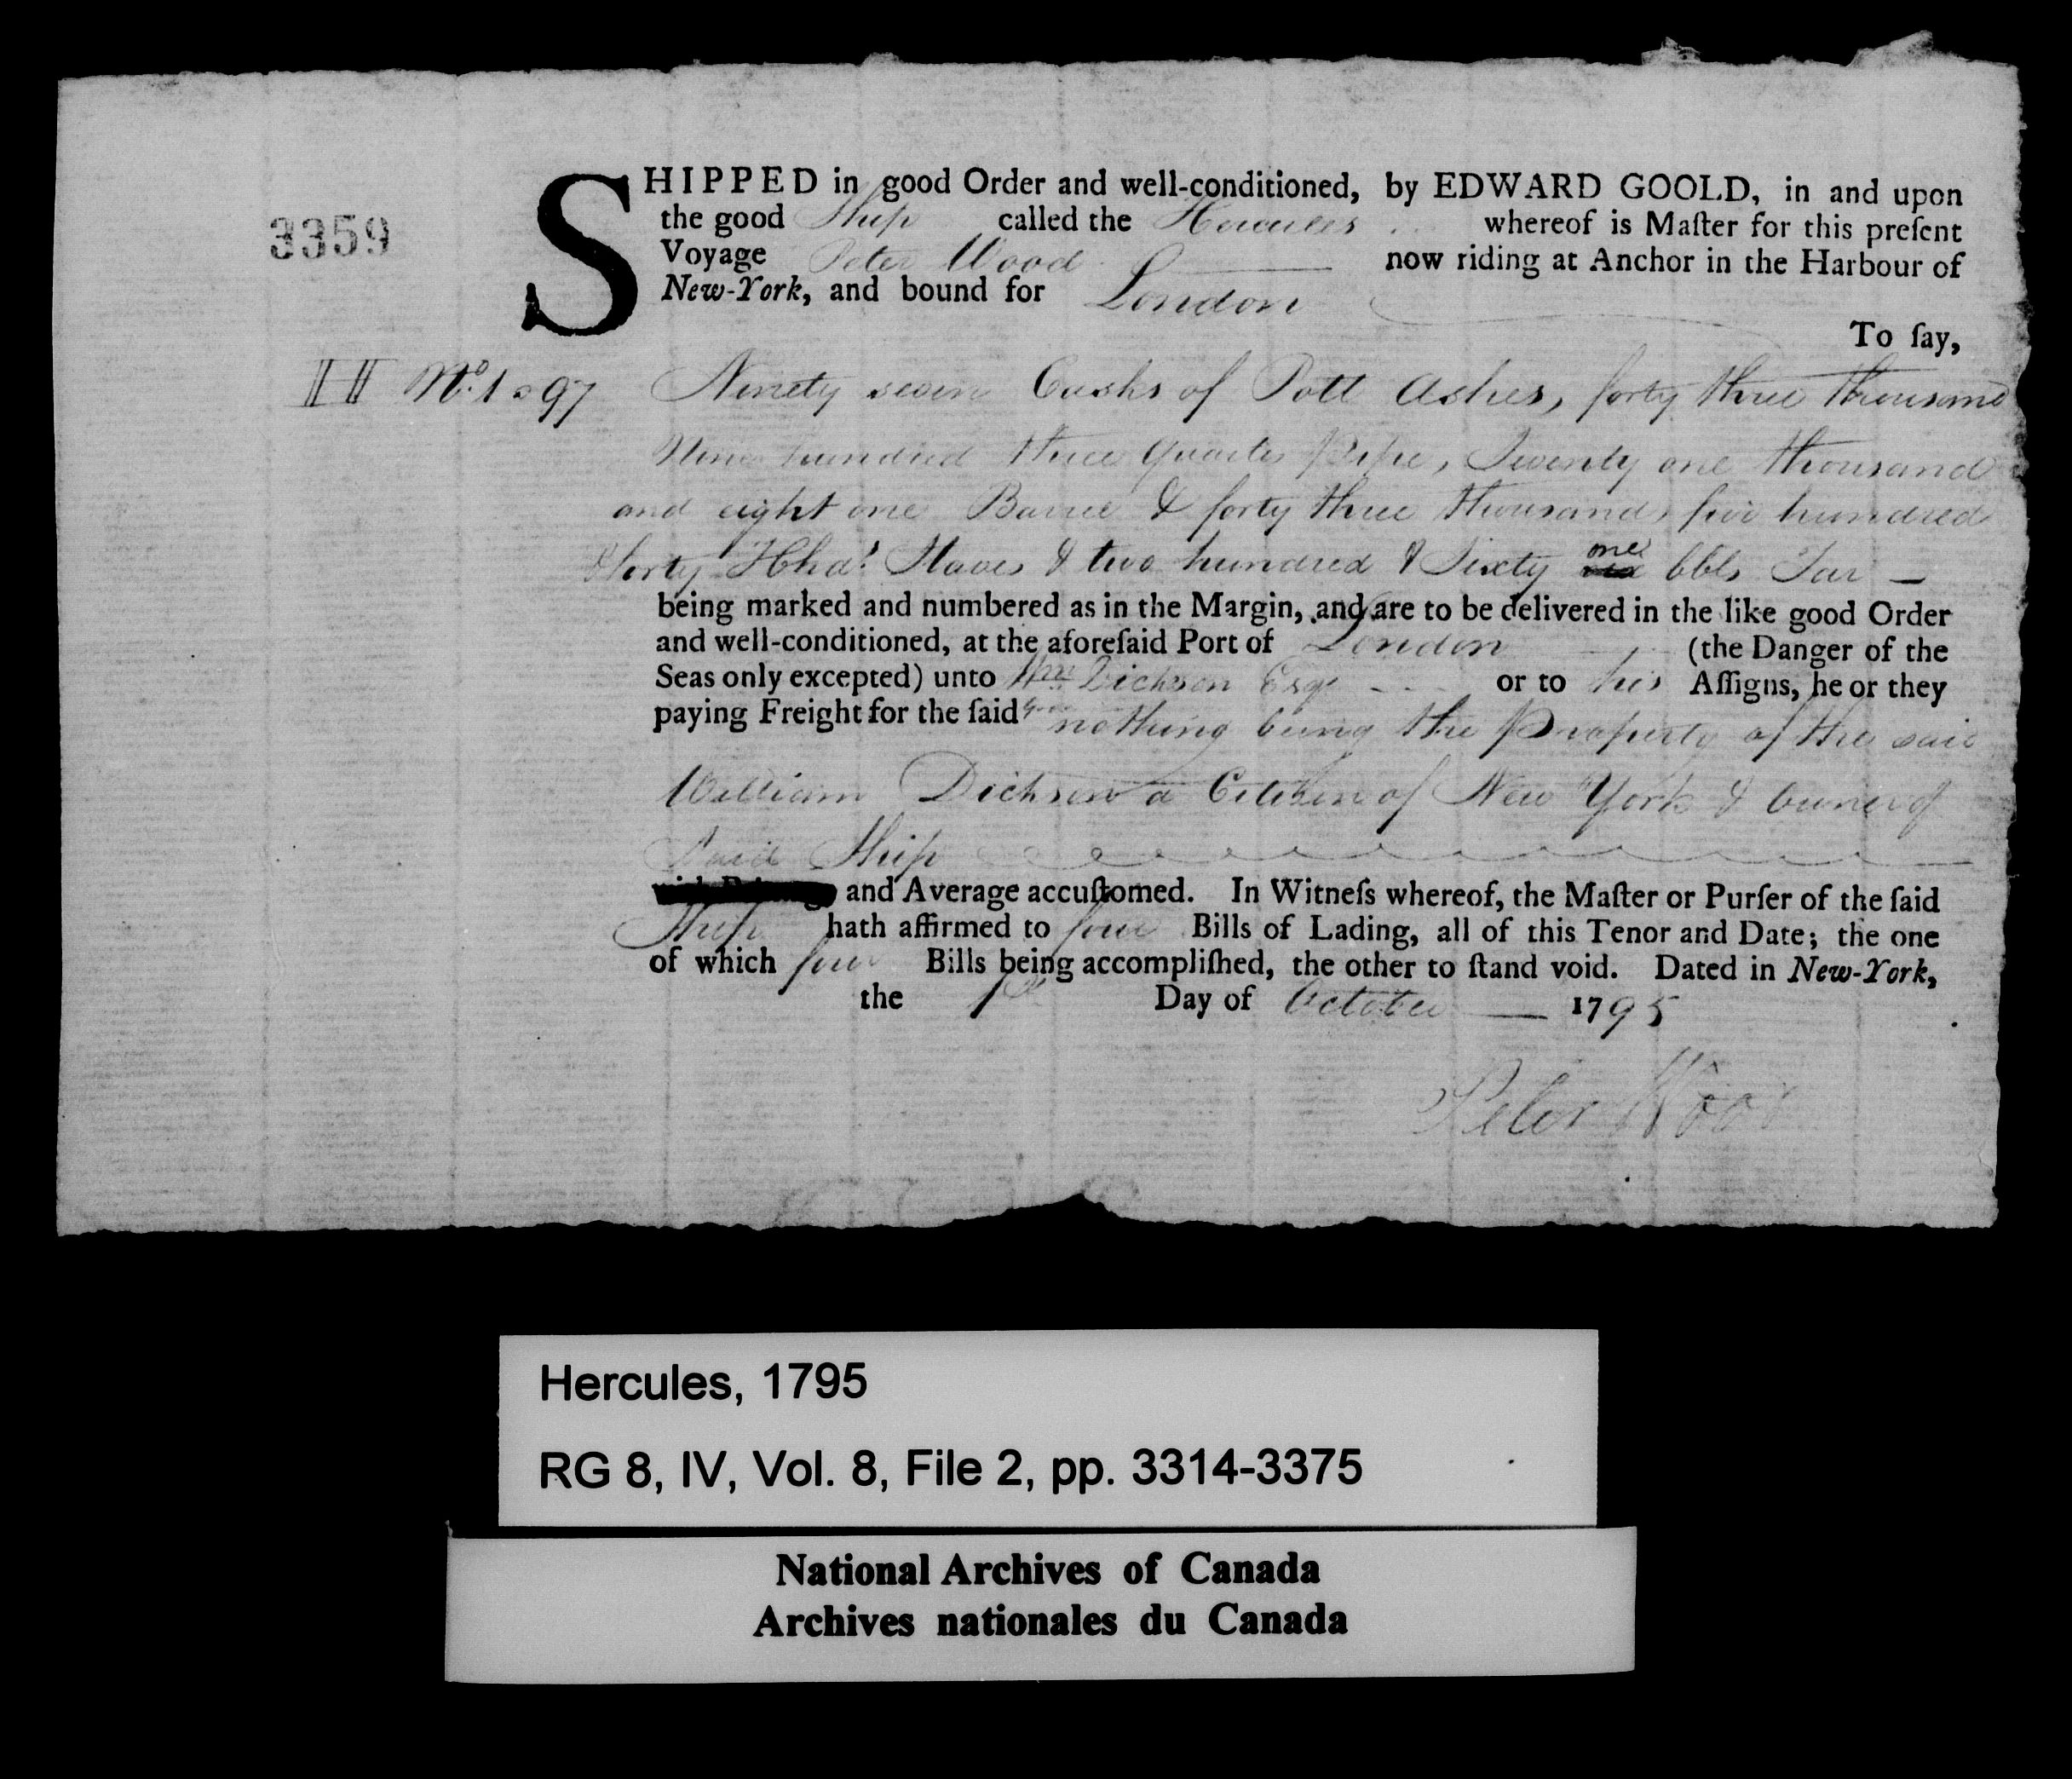 3359
SHIPPED in good Order and well-conditioned, by EDWARD GOOLD, in and upon
the good Ship called the Hercules whereof is Maſter for this preſent
Voyage Peter Wood now riding at Anchor in the Harbour of
New-York, and bound for London
To ſay,
No. 1 a 97 Ninety seven Casks of Pott Ashes, forty three thousand
Nine hundred three quarter Pipe, Twenty one thousand
and eight one Barrel & forty three thousand, five hundred
& forty Hhds. Staves & two hundred & Sixty one bbls Tar —
being marked and numbered as in the Margin, and are to be delivered in the like good Order
and well-conditioned, at the aforeſaid Port of London (the Danger of the
Seas only excepted) unto Wm. Dickson Esqr or to his Aſſigns, he or they
paying Freight for the ſaid nothing being the Property of the said
William Dickson a Citizen of New York & Owner of
Said Ship
and Average accuſtomed. In Witneſs whereof, the Maſter or Purſer of the ſaid
Ship hath affirmed to four Bills of Lading, all of this Tenor and Date; the one
of which four Bills being accompliſhed, the other to ſtand void. Dated in New-York,
the 1st Day of October — 1795
Peter Wood
Hercules, 1795
RG 8, IV, Vol. 8, File 2, pp. 3314-3375
National Archives of Canada
Archives nationales du Canada